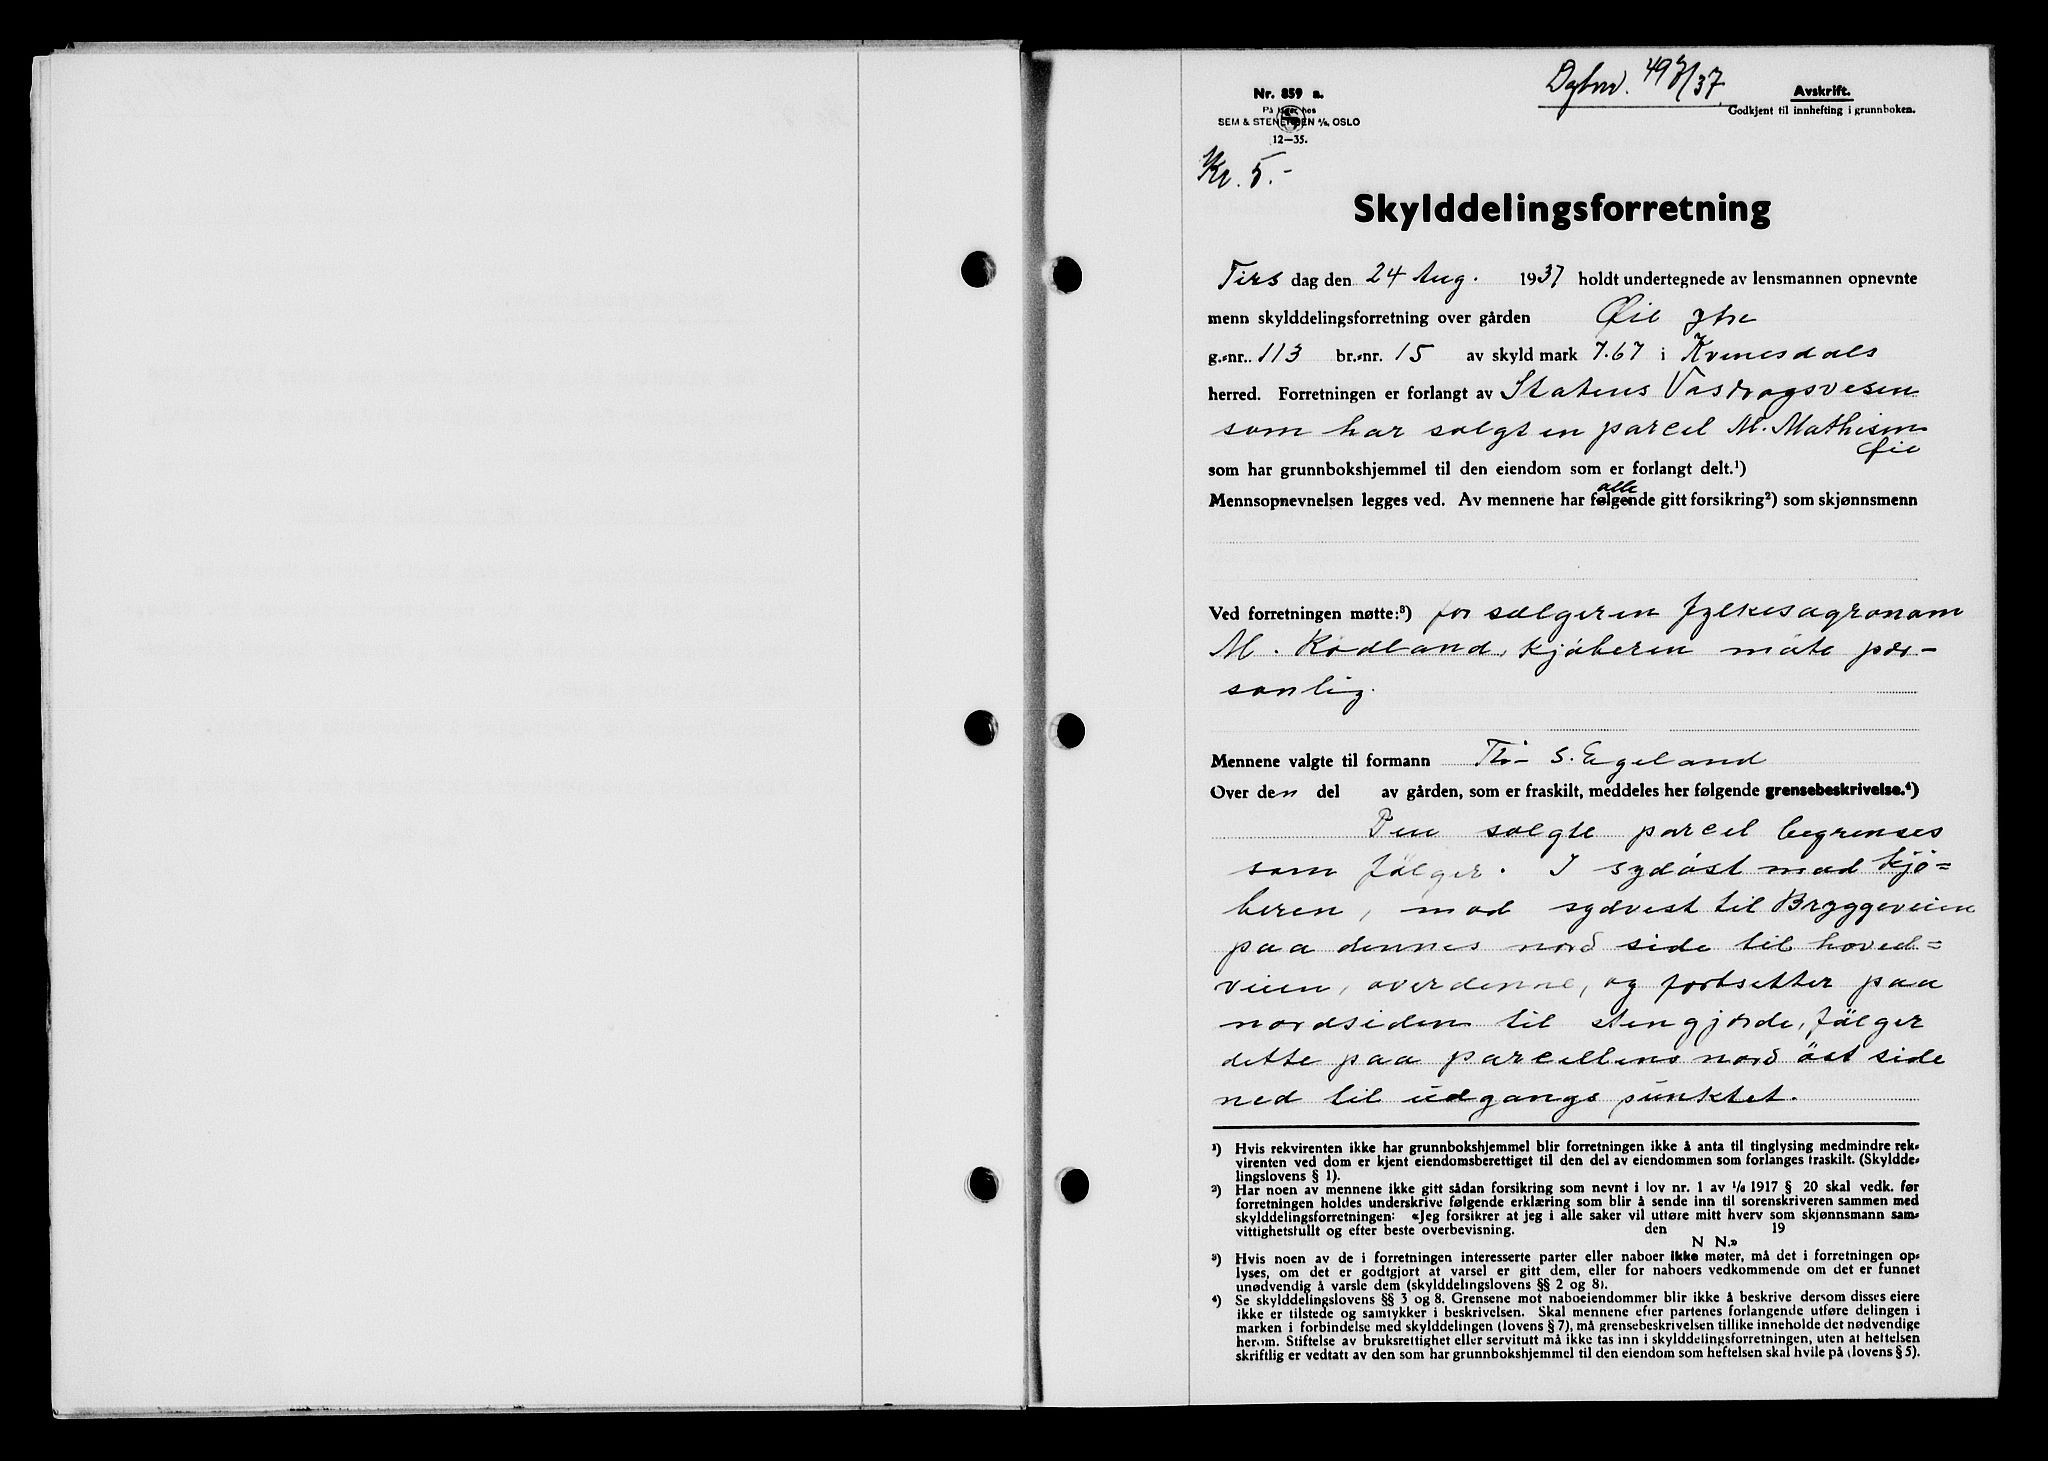 Nr. 859 a.
På lager hos
SEM & STENERSEN A/S, OSLO
12—35.
Dgbnr. 497/37.
Avskrift.
Godkjent til innhefting i grunnboken.
Kr. 5.-
Skylddelingsforretning
Tirs dag den 24 Aug. 1937 holdt undertegnede av lensmannen opnevnte
menn skylddelingsforretning over gården Øie ytre
g.-nr. 113 br.-nr. 15 av skyld mark 7.67 i Kvinesdals
herred. Forretningen er forlangt av Statens Vasdragsvesen
som har solgt en parcel M. Mathisen
Øie
som har grunnbokshjemmel til den eiendom som er forlangt delt.¹)
alle
Mennsopnevnelsen legges ved. Av mennene har følgende gitt forsikring²) som skjønnsmenn
Ved forretningen møtte:³) for sælgeren fylkesagronom
M. Rødland, kjøberen møte per-
sonlig.
Mennene valgte til formann Th. S. Egeland
Over den del av gården, som er fraskilt, meddeles her følgende grensebeskrivelse.⁴)
Den solgte parcel begrenses
som følger. I sydøst mod kjø-
beren, mod sydvest til Bryggeveien
paa dennes nord side til hoved-
veien, over denne, og fortsetter paa
nordsiden til stengjerde, følger
dette paa parcellens nord øst side
ned til udgangs punktet.
¹) Hvis rekvirenten ikke har grunnbokshjemmel blir forretningen ikke å anta til tinglysing medmindre rek-
virenten ved dom er kjent eiendomsberettiget til den del av eiendommen som forlanges fraskilt. (Skyldde-
lingslovens § 1).
²) Har noen av mennene ikke gitt sådan forsikring som nevnt i lov nr. 1 av 1/6 1917 § 20 skal vedk. før
forretningen holdes underskrive følgende erklæring som blir å sende inn til sorenskriveren sammen med
skylddelingsforretningen: «Jeg forsikrer at jeg i alle saker vil utføre mitt hverv som skjønnsmann sam-
vittighetsfullt og efter beste overbevisning. den 19
N N.»
³) Hvis noen av de i forretningen interesserte parter eller naboer ikke møter, må det i forretningen op-
lyses, om det er godtgjort at varsel er gitt dem, eller for naboers vedkommende om det er funnet
unødvendig å varsle dem (skylddelingslovens §§ 2 og 8).
⁴) Se skylddelingslovens §§ 3 og 8. Grensene mot naboeiendommer blir ikke å beskrive dersom disses eiere
ikke er tilstede og samtykker i beskrivelsen. Skal mennene efter partenes forlangende utføre delingen i
marken i forbindelse med skylddelingen (lovens § 7), må grensebeskrivelsen tillike inneholde det nødvendige
herom. Stiftelse av bruksrettighet eller servitutt må ikke tas inn i skylddelingsforretningen, uten at heftelsen
skriftlig er vedtatt av den som har grunnbokshjemmel til den eiendom som heftelsen skal hvile på (lovens § 5).